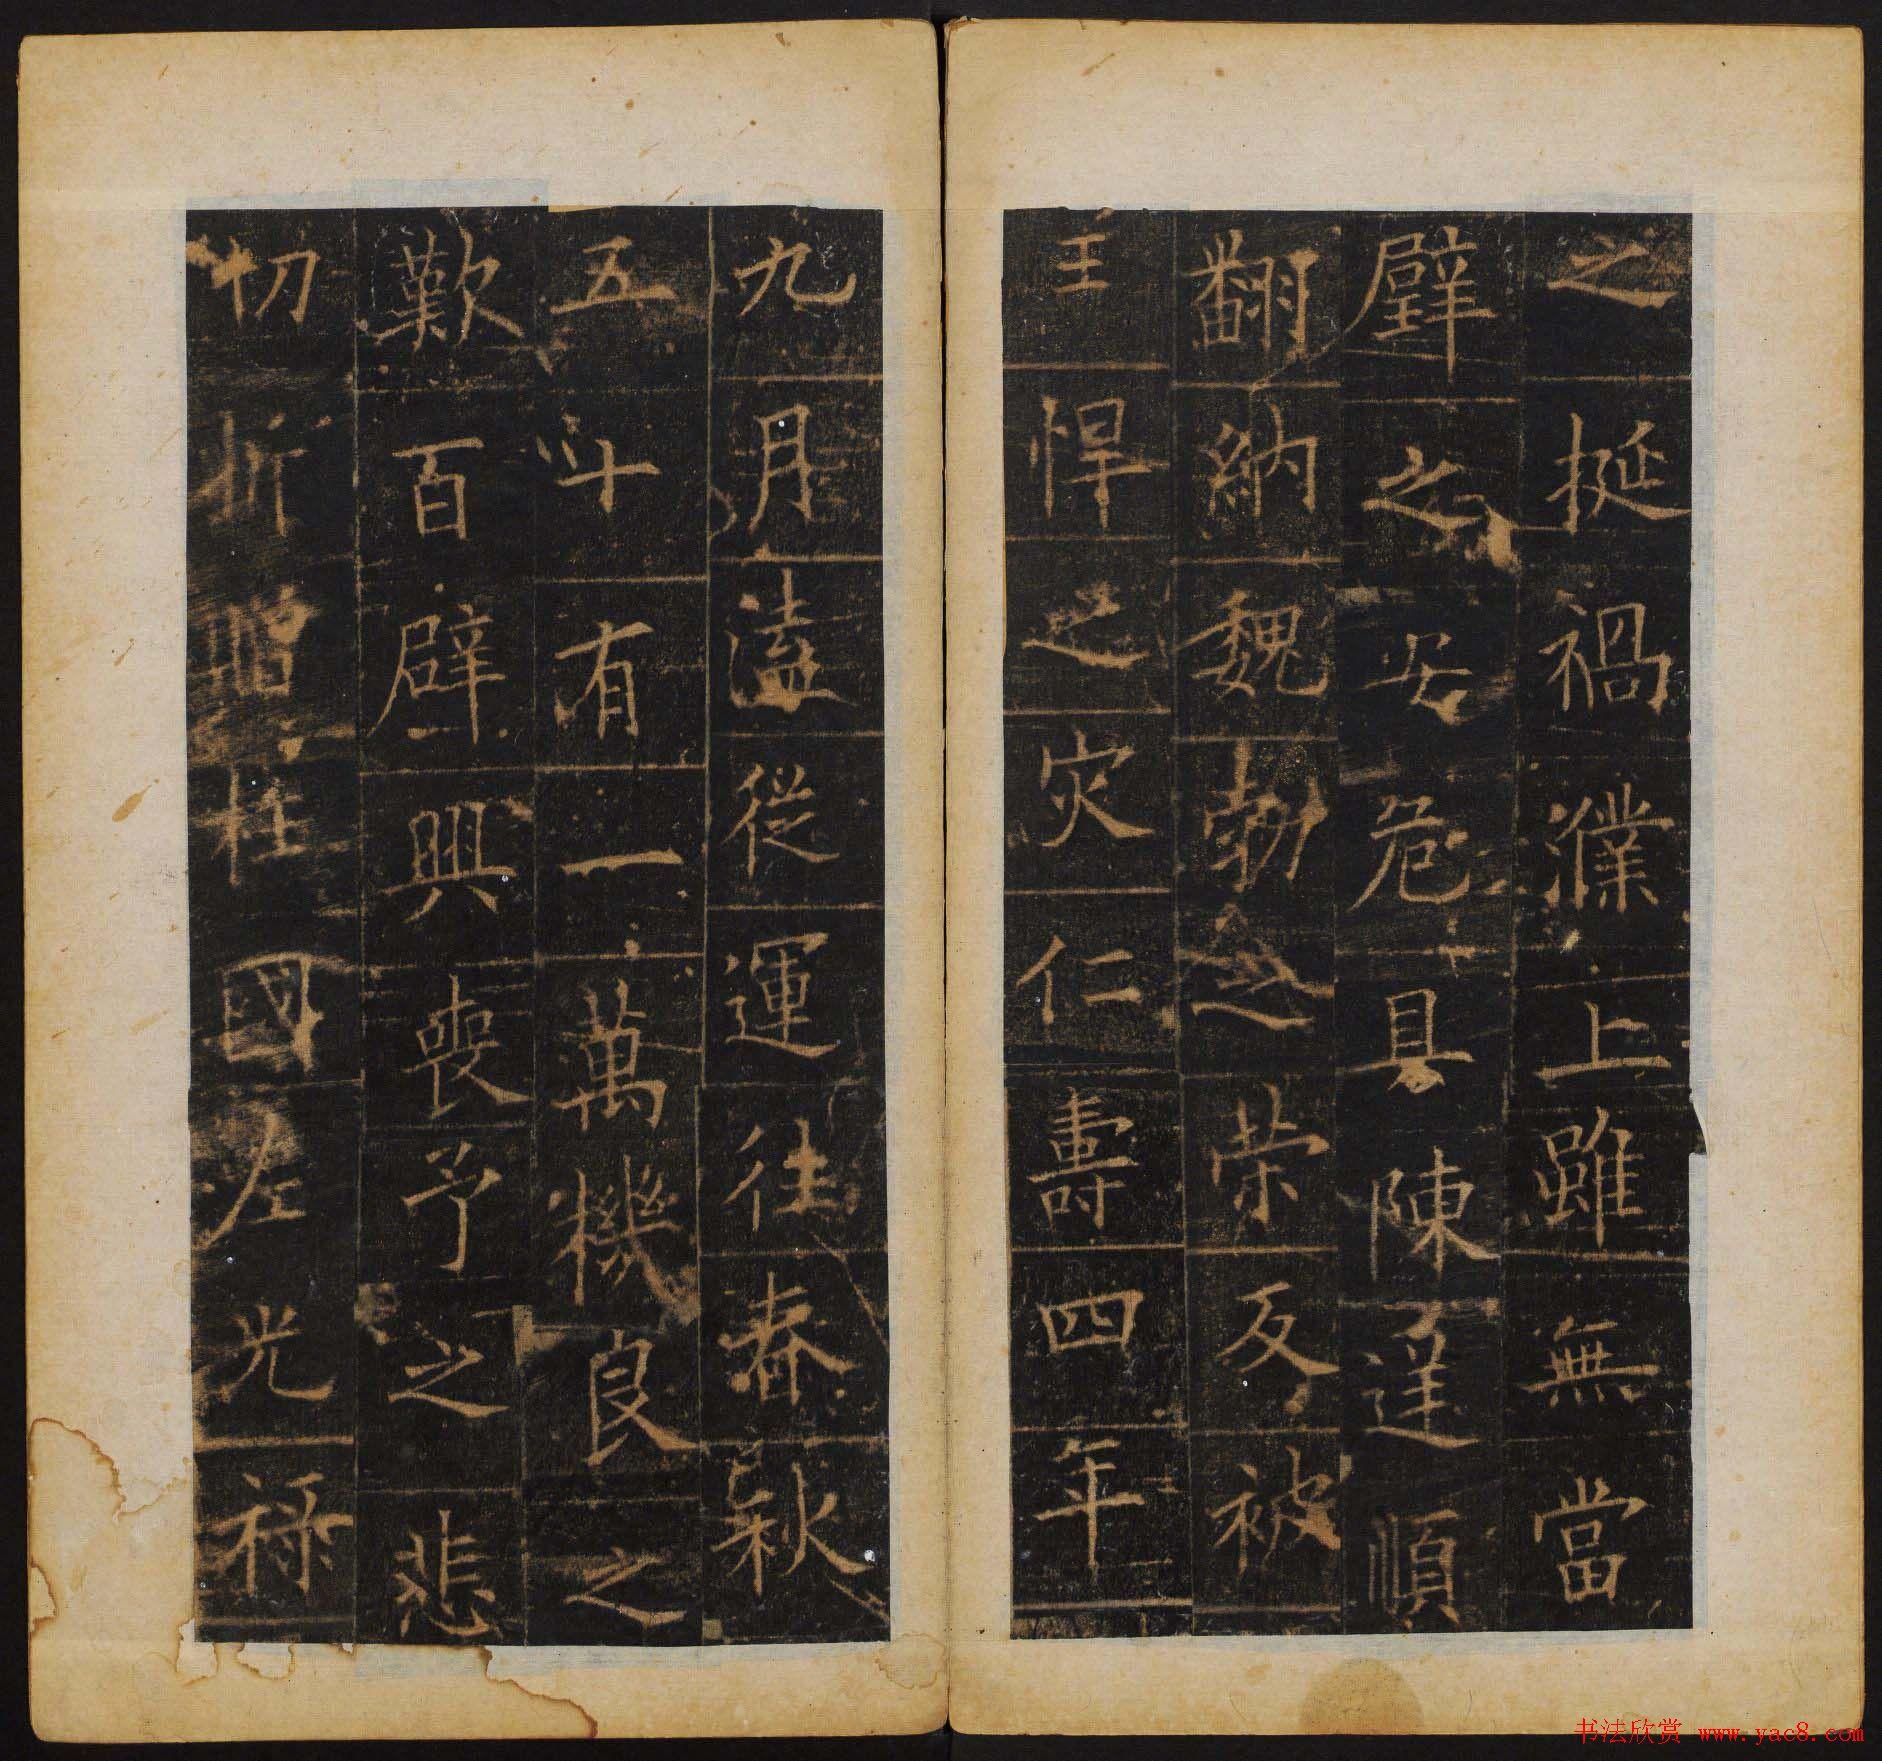 之挺禍濮上雖無當
璧之安危具陳逆順
翻納魏勃之榮反被
王悍之灾仁壽四年
九月溘從運往春秋
五十有一萬機良之
歎百辟興喪予之悲
切折贈柱國左光祿
书法欣赏 www.yac8.com